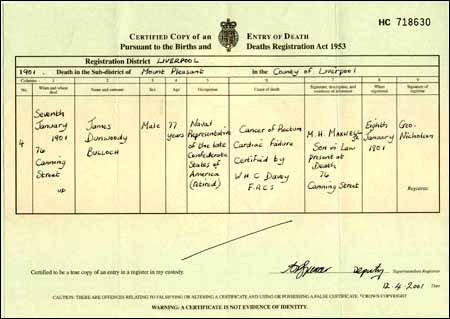 HC 718630
CERTIFIED COPY of an ENTRY OF DEATH
Pursuant to the Births and Deaths Registration Act 1953
Registration District LIVERPOOL
1901. Death in the Sub-district of Mount Pleasant in the County of Liverpool
Columns 1 2 3 4 5 6 7 8 9
No. When and where died Name and surname Sex Age Occupation Cause of death Signature, description, and residence of informant When registered Signature of registrar
4
Seventh January 1901 76 Canning Street UD
James Dunwoody BULLOCH
Male
77 years
Naval Representative of the late Confederate States of America (retired)
Cancer of Rectum Cardiac Failure Certified by W H C Davey F.R.C.S
M.H. MAXWELL Jr Son in Law present at Death 76 Canning Street
Eighth January 1901
Geo. Nicholson
Registrar
Certified to be a true copy of an entry in a register in my custody.
Deputy Superintendent Registrar
12.4.2001 Date
CAUTION: THERE ARE OFFENCES RELATING TO FALSIFYING OR ALTERING A CERTIFICATE AND USING OR POSSESSING A FALSE CERTIFICATE. ©CROWN COPYRIGHT
WARNING: A CERTIFICATE IS NOT EVIDENCE OF IDENTITY.